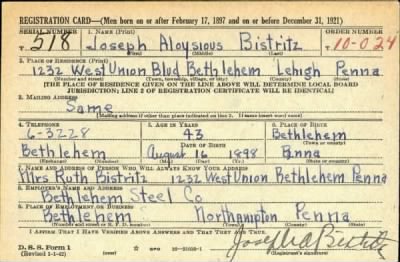 REGISTRATION CARD—(Men born on or after February 17, 1897 and on or before December 31, 1921)
SERIAL NUMBER 1. NAME (Print) ORDER NUMBER
T 518 Joseph Aloysious Bistritz 10-024
(First) (Middle) (Last)
2. PLACE OF RESIDENCE (Print)
1232 West Union Blvd Bethlehem Lehigh Penna
(Number and street) (Town, township, village, or city) (County) (State)
[THE PLACE OF RESIDENCE GIVEN ON THE LINE ABOVE WILL DETERMINE LOCAL BOARD
JURISDICTION; LINE 2 OF REGISTRATION CERTIFICATE WILL BE IDENTICAL]
3. MAILING ADDRESS
Same
[Mailing address if other than place indicated on line 2. If same insert word same]
4. TELEPHONE 5. AGE IN YEARS 6. PLACE OF BIRTH
6-3228 43 Bethlehem
DATE OF BIRTH (Town or county)
Bethlehem August 16 1898 Penna
(Exchange) (Number) (Mo.) (Day) (Yr.) (State or country)
7. NAME AND ADDRESS OF PERSON WHO WILL ALWAYS KNOW YOUR ADDRESS
Mrs Ruth Bistritz 1232 West Union Bethlehem Penna
8. EMPLOYER'S NAME AND ADDRESS
Bethlehem Steel Co
9. PLACE OF EMPLOYMENT OR BUSINESS
Bethlehem Northampton Penna
(Number and street or R. F. D. number) (Town) (County) (State)
I AFFIRM THAT I HAVE VERIFIED ABOVE ANSWERS AND THAT THEY ARE TRUE.
D. S. S. Form 1
(Revised 1-1-42) (over)
Joseph A Bistritz
(Registrant's signature)